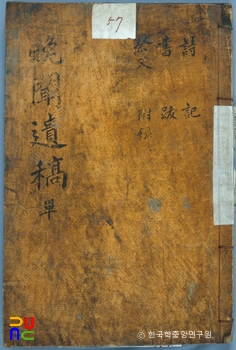 晩聞遺稿 單
詩 記
書 跋
祭文 附錄
57
한국학중앙연구원